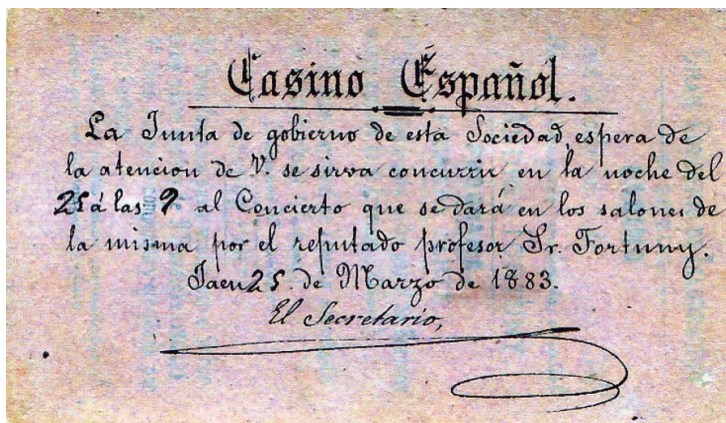 Casino Español.
La Junta de gobierno de esta Sociedad, espera de
la atencion de V. se sirva concurrir en la noche del
25 á las 9 al Concierto que se dará en los salones de
la misma por el reputado profesor, Sr. Fortuny.
Jaen 25. de Marzo de 1883.
El Secretario,